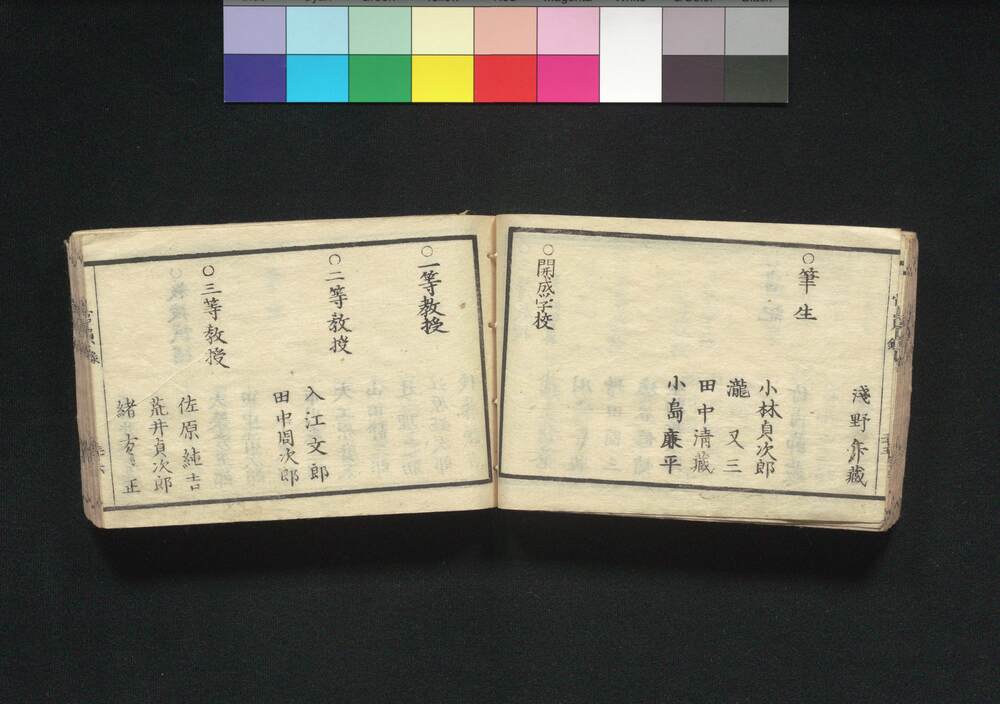 淺野
藏
○筆生
小林貞次郎
瀧又三
田中清藏
小島廉平
○開成学校
○一等教授
○二等教授
入江文郎
田中周次郎
○三等教授
佐原純吉
荒井貞次郎
緒方正
官員録